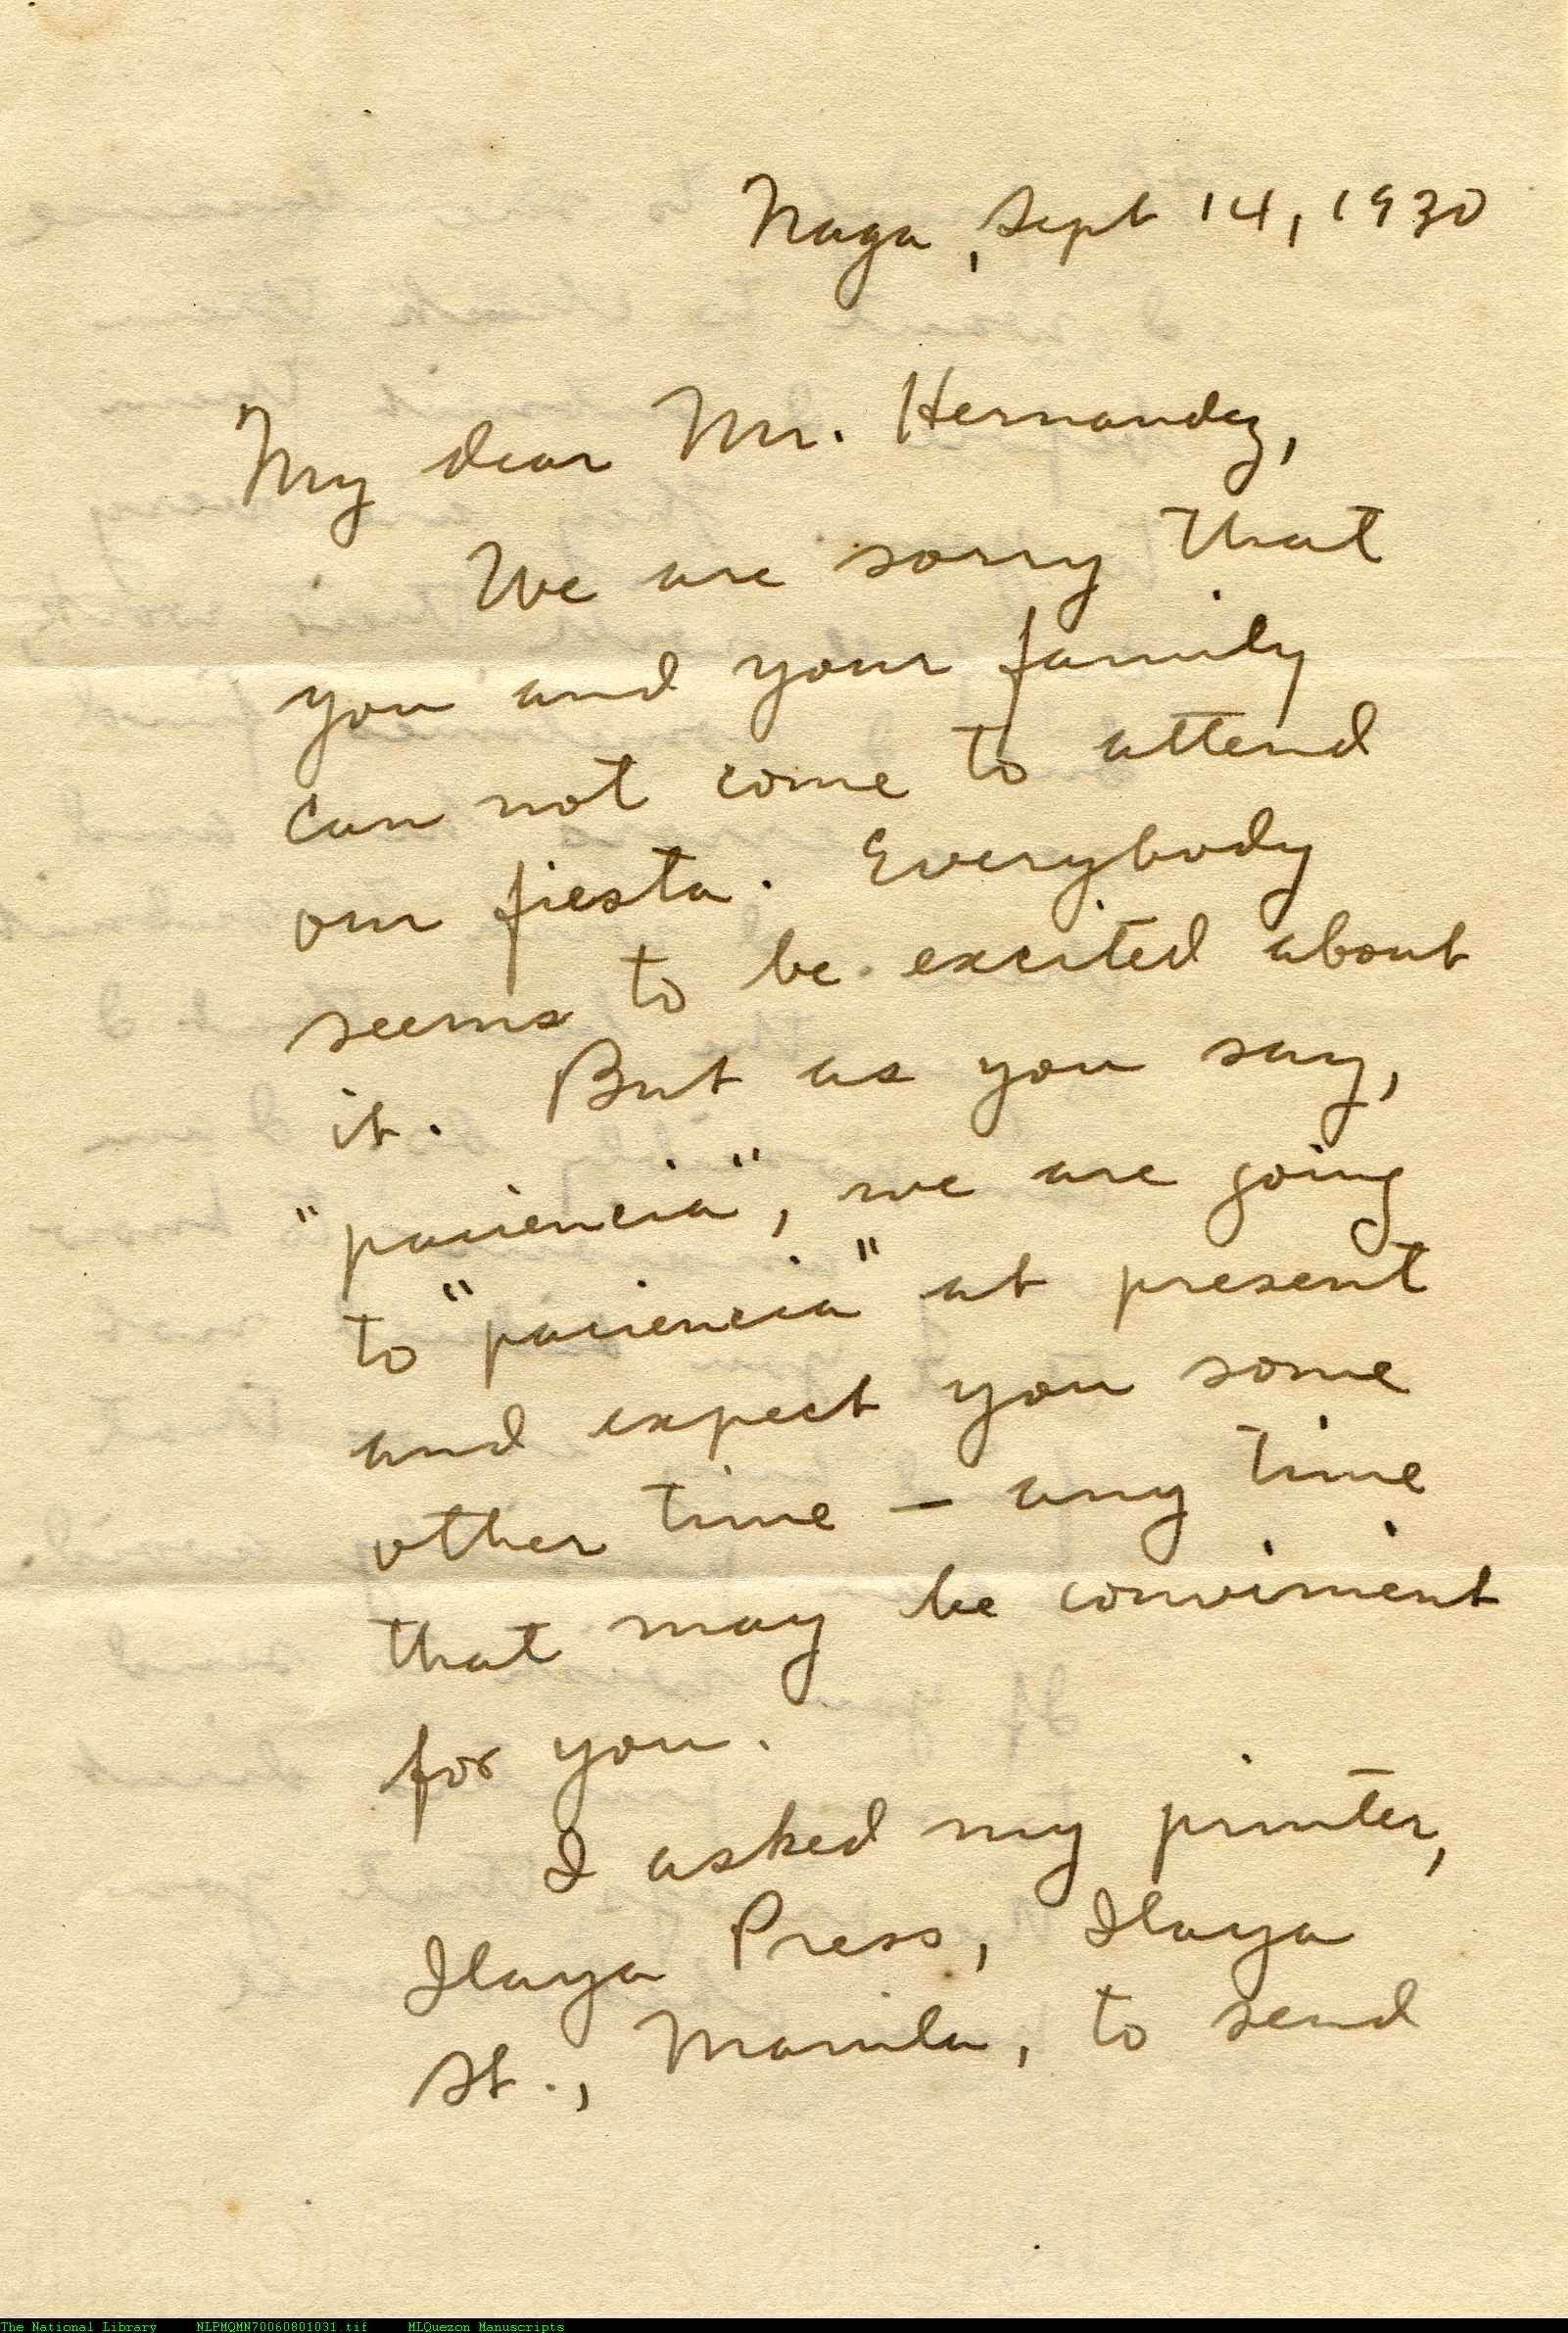 Naga, Sept 14, 1930
My dear Mr. Hernandez,
We are sorry that
you and your family
can not come to attend
our fiesta. Everybody
seems to be excited about
it. But as you say,
"paciencia", we are going
to "paciencia" at present
and expect you some
other time – any time
that may be conviment
for you.
I asked my printer,
Ilaya Press, Ilaya
St., Manila, to send
The National Library NLPMQMN70060801031.tif MLQuezon Manuscripts